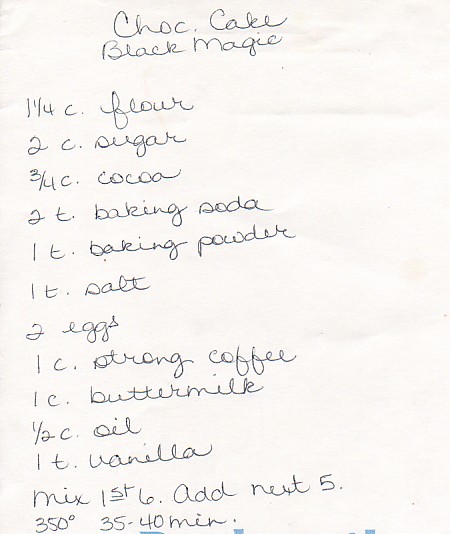 Choc. Cake
Black Magic
1 1/4 c. flour
2 c. sugar
3/4 c. cocoa
2 t. baking soda
1 t. baking powder
1 t. salt
2 eggs
1 c. strong coffee
1 c. buttermilk
1/2 c. oil
1 t. vanilla
Mix 1st 6. Add next 5.
350° 35-40 min.